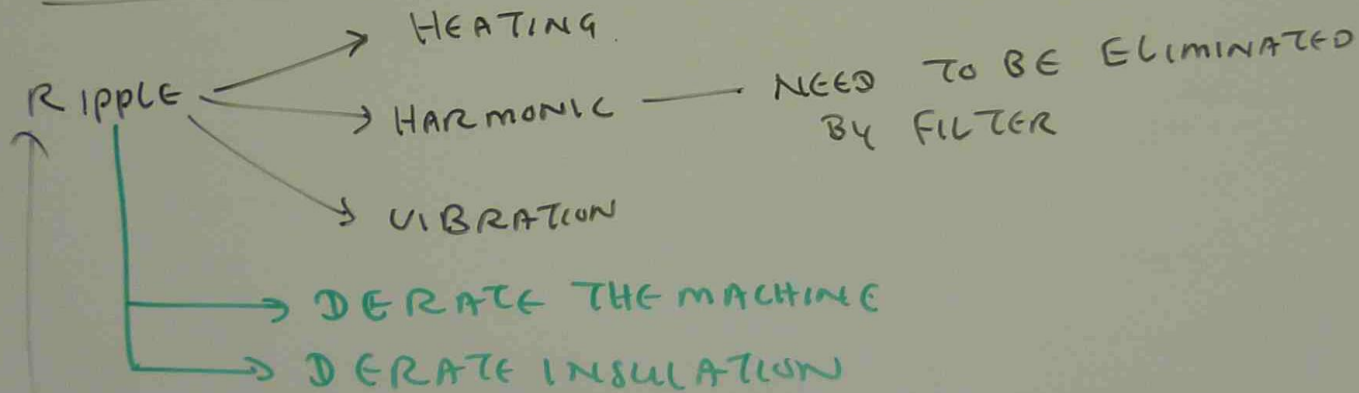 HEATING
RIPPLE
HARMONIC
NEED TO BE ELIMINATED
BY FILTER
VIBRATION
DERATE THE MACHINE
DERATE INSULATION